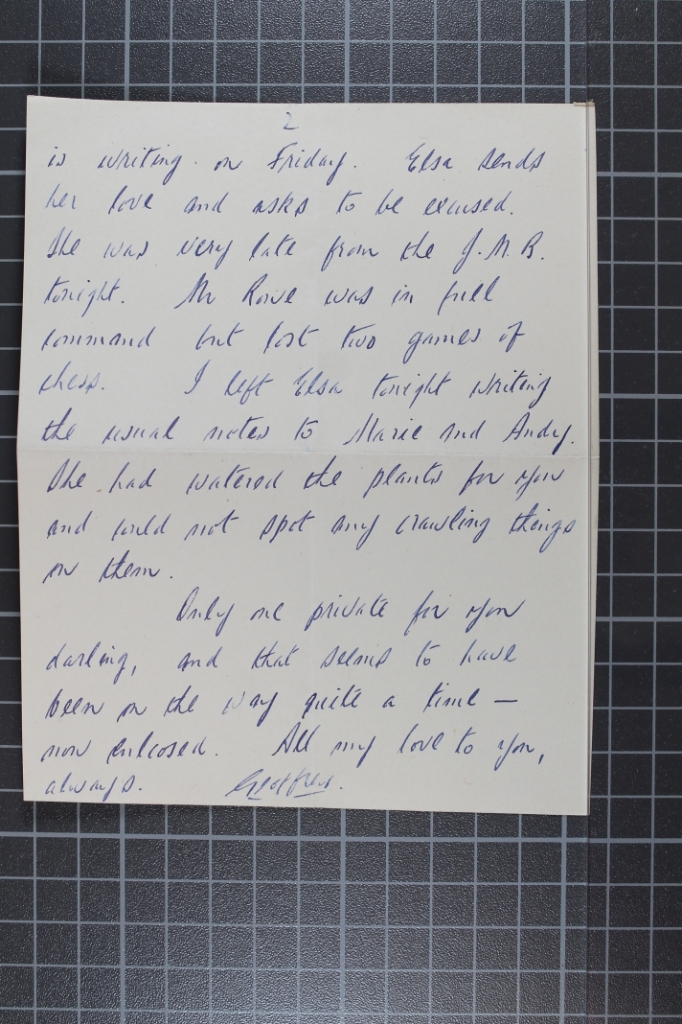 2
is writing on Friday. Elsa sends
her love and asks to be excused.
She was very late from the J.M.B.
tonight. Mr Rowe was in full
command but lost two games of
chess. I left Elsa tonight writing
the usual notes to Marie and Andy.
She had watered the plants for you
and could not spot any crawling things
on them.
Only one private for you
darling, and that seems to have
been on the way quite a time —
now enclosed. All my love to you,
always. Geoffrey.